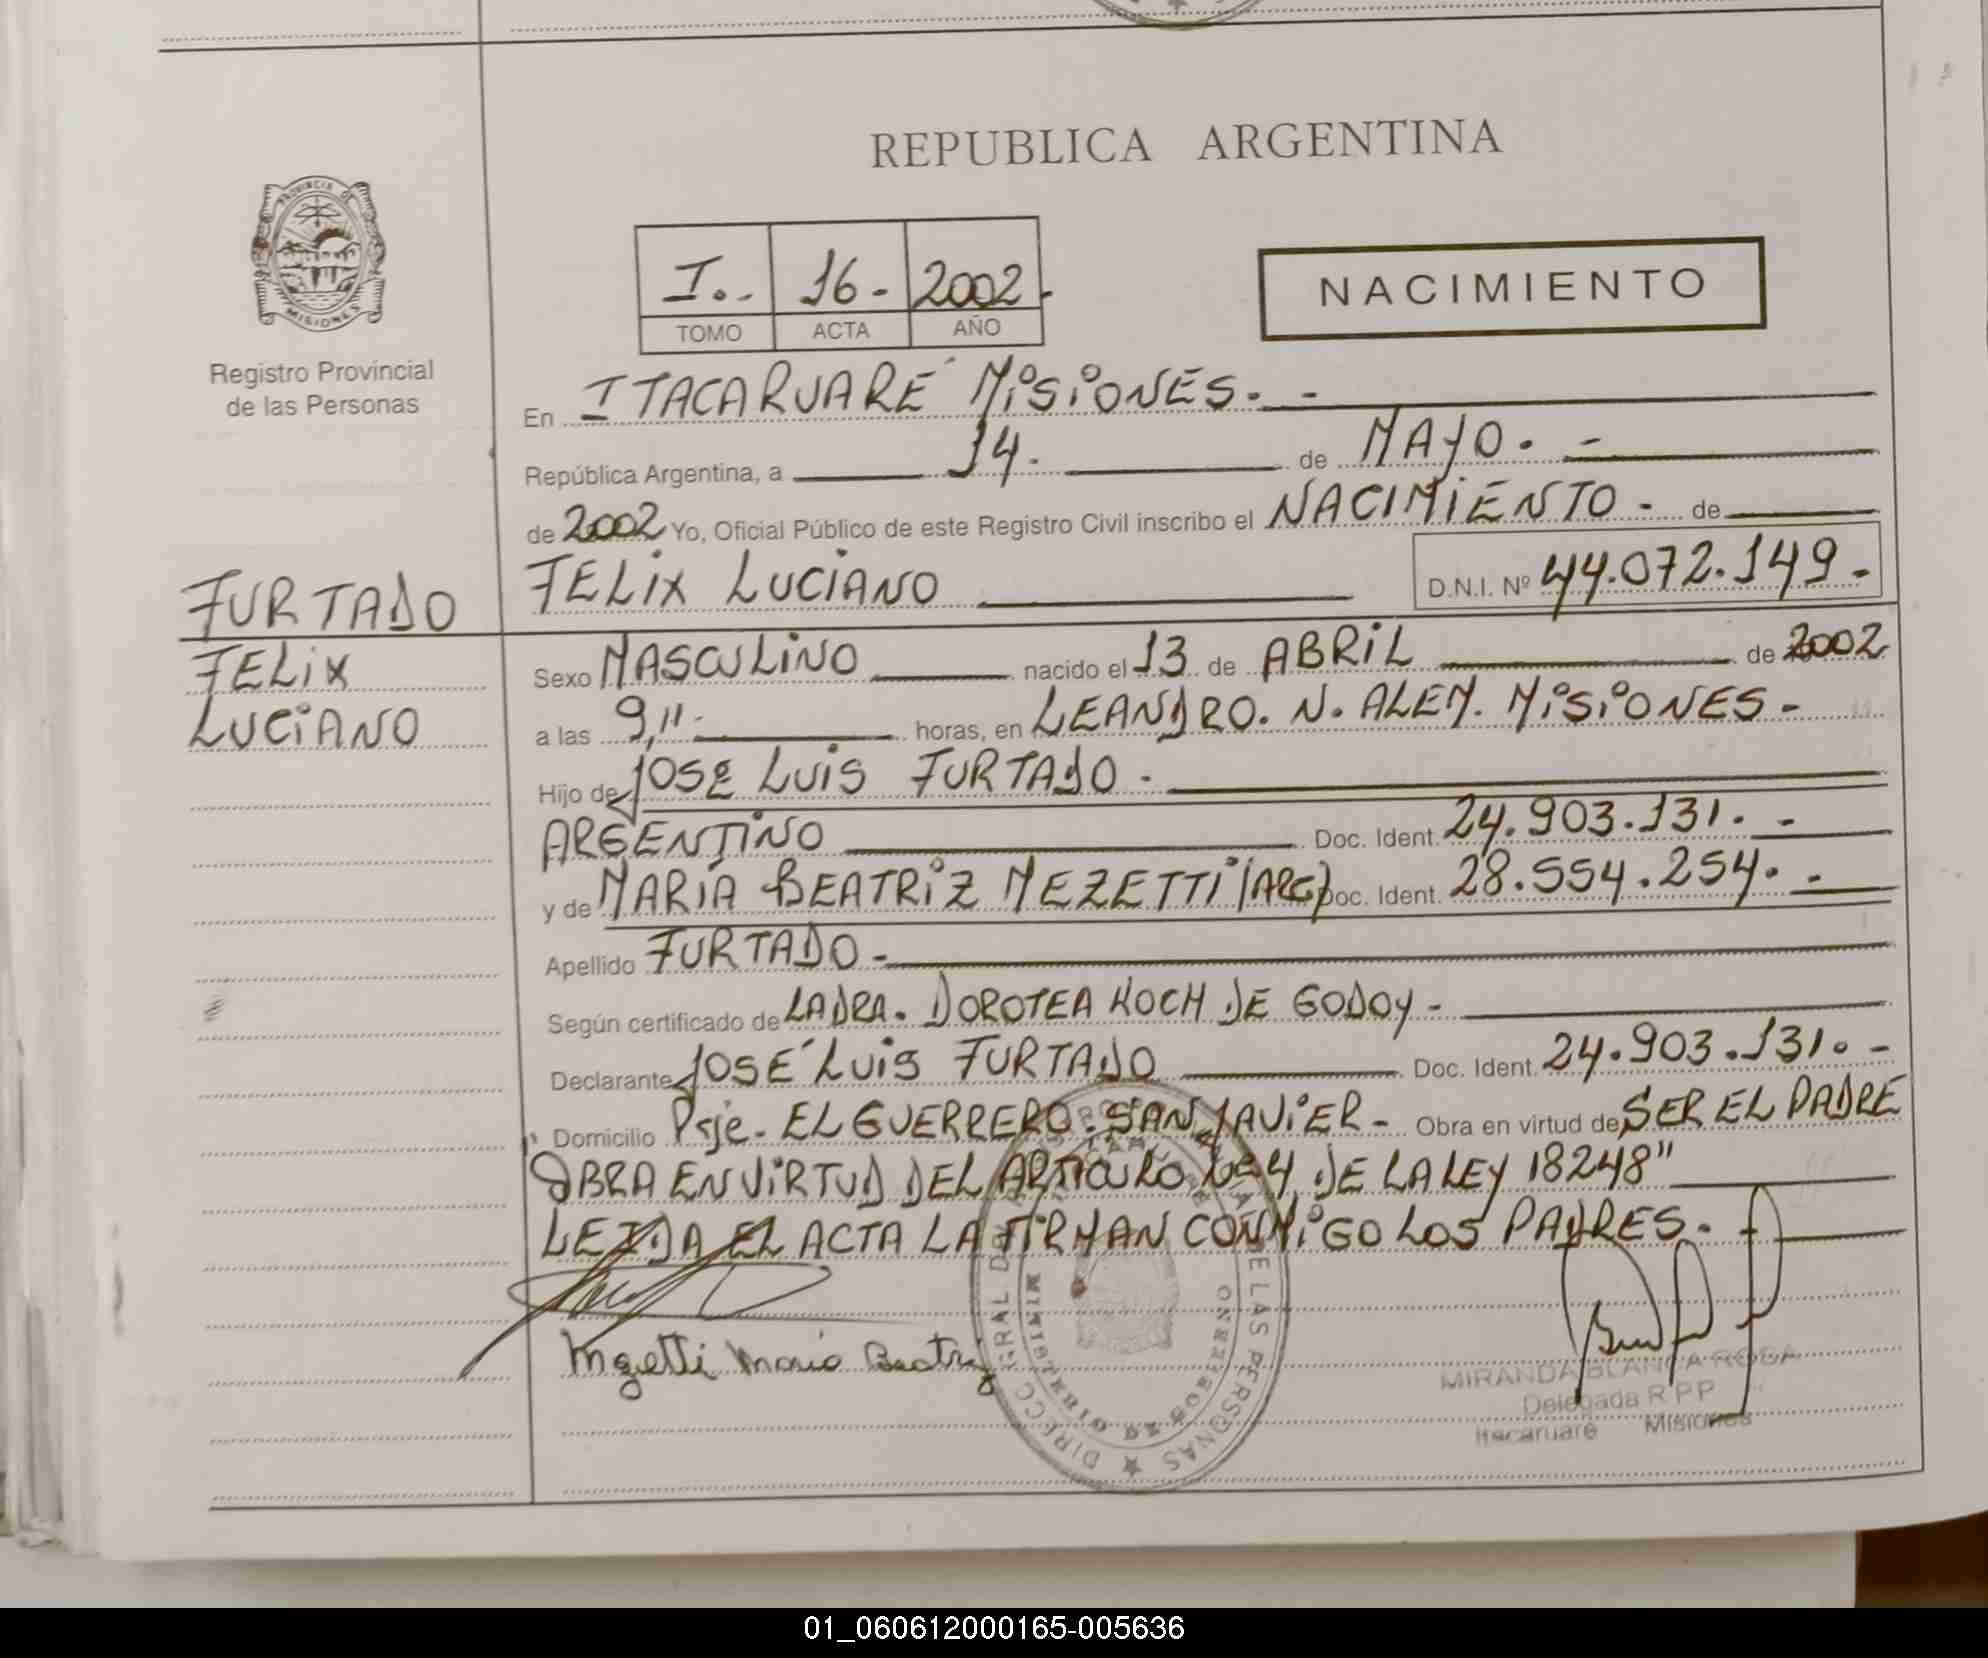 REPUBLICA ARGENTINA
PROVINCIA DE
MISIONES
Registro Provincial
de las Personas
I.- 16.- 2002.-
TOMO ACTA AÑO
NACIMIENTO
En ITACARUARE´ MISIONES. -
República Argentina, a 14. de MAYO. -
de 2002 Yo, Oficial Público de este Registro Civil inscribo el NACIMIENTO - de
FELIX LUCIANO D.N.I. Nº 44.072.149.-
FURTADO
FELIX
LUCIANO
Sexo MASCULINO nacido el 13 de ABRIL de 2002
a las 9,11.- horas, en LEANDRO. N. ALEM. MISIONES -
Hijo de JOSE LUIS FURTADO -
ARGENTINO Doc. Ident. 24.903.131. -
y de MARIA BEATRIZ MEZETTI (ARG) Doc. Ident. 28.554.254. -
Apellido FURTADO -
Según certificado de LA DRA. DOROTEA KOCH DE GODOY -
Declarante JOSE´ LUIS FURTADO Doc. Ident. 24.903.131. -
Domicilio Psje. EL GUERRERO. SAN JAVIER - Obra en virtud de SER EL PADRE
OBRA EN VIRTUD DEL ARTICULO Nº 4 DE LA LEY 18248"
LEIDA EL ACTA LA FIRMAN CONMIGO LOS PADRES.-
Mezetti Maria Beatriz
MIRANDA BLANCA ROSA
Delegada R P P
Itacaruaré Misiones
DE LAS PERSONAS
MINISTERIO DE GOBIERNO
01_060612000165-005636